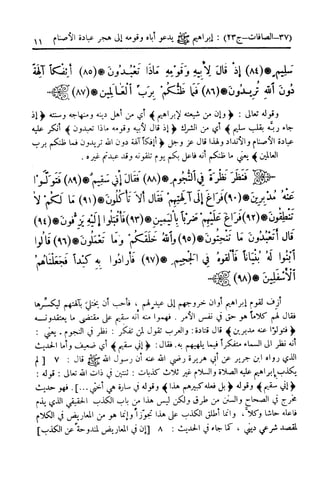 (٣٧ـ الصافات ـ ج٢٣) : إبراهيم ﷺ يدعو أباه وقومه إلى هجر عبادة الأصنام ١١
سَلِيمٍ ﴿٨٤﴾ إِذْ قَالَ لِأَبِيهِ وَقَوْمِهِ مَاذَا تَعْبُدُونَ ﴿٨٥﴾ أَئِفْكًا آلِهَةً
دُونَ اللهِ تُرِيدُونَ ﴿٨٦﴾ فَمَا ظَنُّكُم بِرَبِّ الْعَالَمِينَ ﴿٨٧﴾
وقوله تعالى : ﴿وإن من شيعته لإبراهيم﴾ أي من أهل دينه ومنهاجه وسنته ﴿إذ
جاء ربه بقلب سليم﴾ أي من الشرك ﴿إذ قال لأبيه وقومه ماذا تعبدون﴾ أنكر عليه
عبادة الأصنام والأنداد ولهذا قال عز وجل ﴿أئفكاً آلهة دون الله تريدون فما ظنكم برب
العالمين﴾ يعني ما ظنكم أنه فاعل بكم يوم تلقونه وقد عبدتم غيره .
فَنَظَرَ نَظْرَةً فِي النُّجُومِ ﴿٨٨﴾ فَقَالَ إِنِّي سَقِيمٌ ﴿٨٩﴾ فَتَوَلَّوْا
عَنْهُ مُدْبِرِينَ ﴿٩٠﴾ فَرَاغَ إِلَى آلِهَتِهِمْ فَقَالَ أَلَا تَأْكُلُونَ ﴿٩١﴾ مَا لَكُمْ لَا
تَنطِقُونَ ﴿٩٢﴾ فَرَاغَ عَلَيْهِمْ ضَرْبًا بِالْيَمِينِ ﴿٩٣﴾ فَأَقْبَلُوا إِلَيْهِ يَزِفُّونَ ﴿٩٤﴾
قَالَ أَتَعْبُدُونَ مَا تَنْحِتُونَ ﴿٩٥﴾ وَاللهُ خَلَقَكُمْ وَمَا تَعْمَلُونَ ﴿٩٦﴾ قَالُوا
ابْنُوا لَهُ بُنْيَانًا فَأَلْقُوهُ فِي الْجَحِيمِ ﴿٩٧﴾ فَأَرَادُوا بِهِ كَيْدًا فَجَعَلْنَاهُمُ
الْأَسْفَلِينَ ﴿٩٨﴾
أزف لقوم إبراهيم أوان خروجهم إلى عيد لهم ، فأحب أن يختلي بآلهتهم ليكسرها
فقال لهم كلاماً هو حق في نفس الأمر . فهموا منه أنه سقيم على مقتضى ما يعتقدونه
﴿فتولوا عنه مدبرين﴾ قال قتادة : والعرب تقول لمن تفكر : نظر في النجوم . يعني :
أنه نظر الى السماء متفكراً فيما يلهيهم به . فقال : ﴿إني سقيم﴾ أي ضعيف وأما الحديث
الذي رواه ابن جرير عن أبي هريرة رضي الله عنه أن رسول الله ﷺ قال : ٧ [ لم
يكذب إبراهيم عليه الصلاة والسلام غير ثلاث كذبات : ثنتين في ذات الله تعالى : قوله :
﴿إني سقيم﴾ وقوله ﴿بل فعله كبيرهم هذا﴾ وقوله في سارة هي أختي ...] . فهو حديث
مخرج في الصحاح والسنن من طرق ولكن ليس هذا من باب الكذب الحقيقي الذي يذم
فاعله حاشا وكلا ، وانما أطلق الكذب على هذا تجوزاً وإنما هو من المعاريض في الكلام
لمقصد شرعي ديني ، كما جاء في الحديث : ٨ [إن في المعاريض لمندوحة عن الكذب]